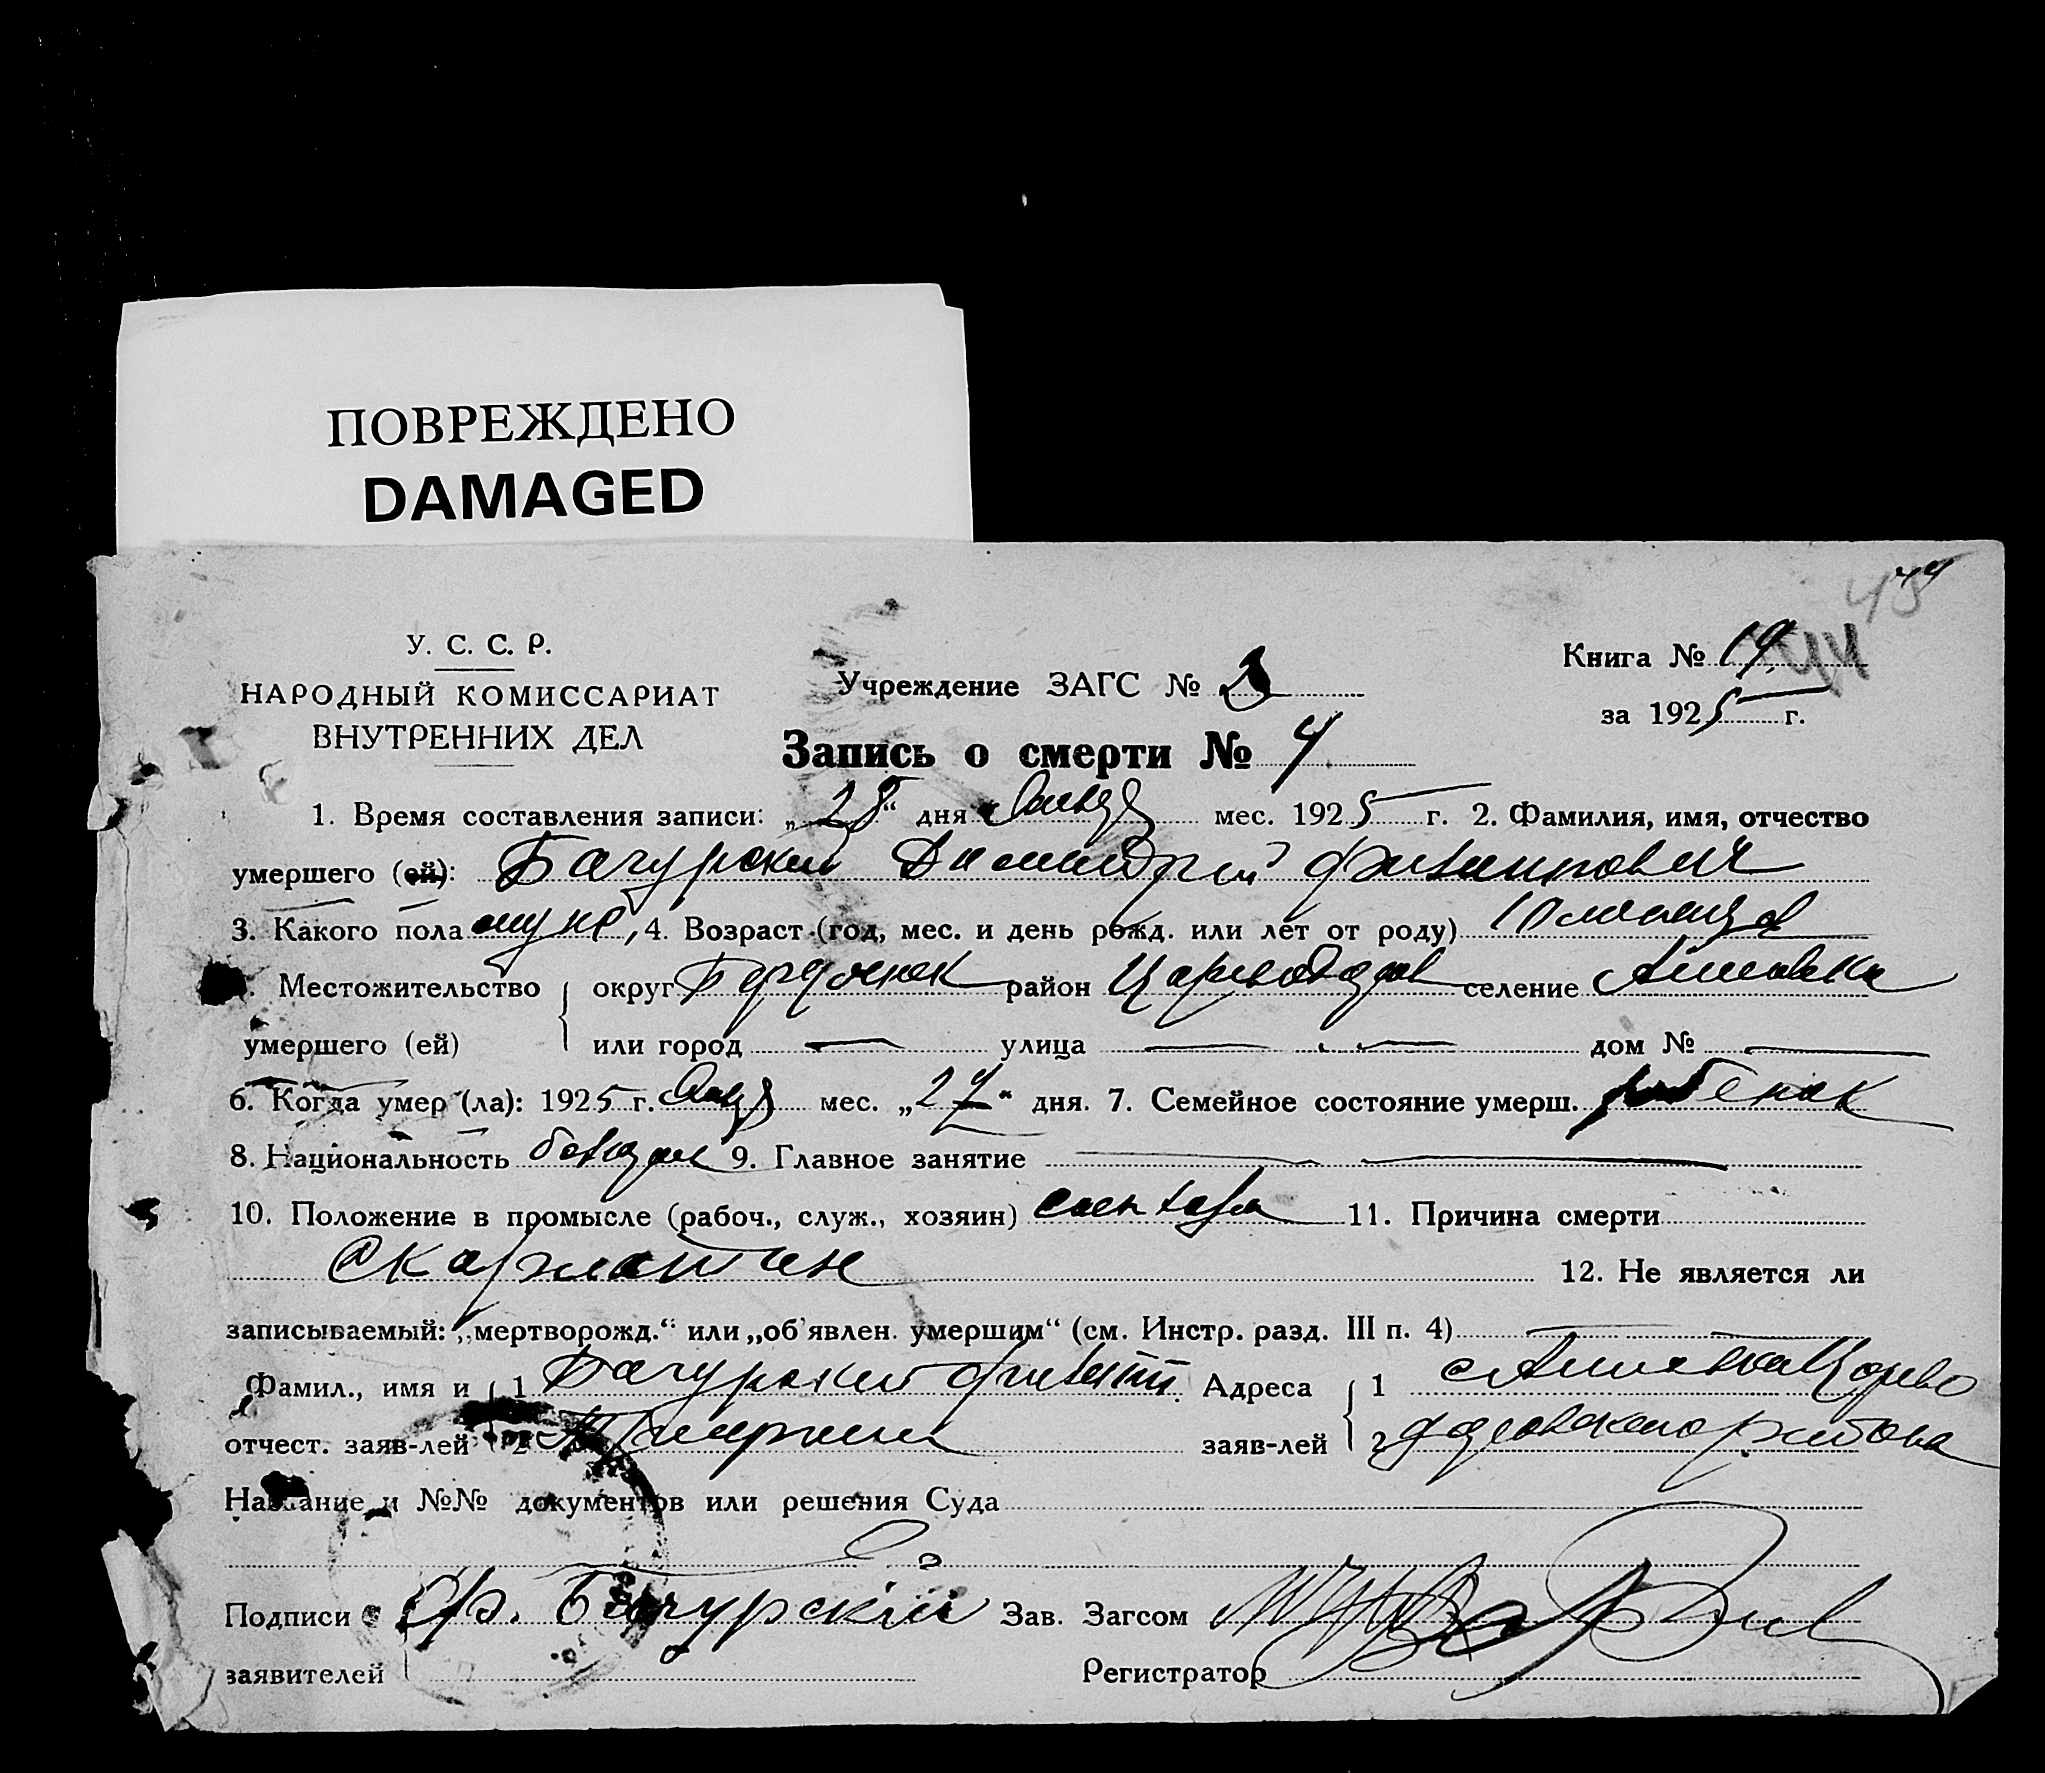 ПОВРЕЖДЕНО
DAMAGED
44
У. С. С. Р.
НАРОДНЫЙ КОМИССАРИАТ
ВНУТРЕННИХ ДЕЛ
Учреждение ЗАГС №
Книга № 19
за 1925 г.
Запись о смерти № 4
1. Время составления записи: „28“ дня Янв мес. 1925 г. 2. Фамилия, имя, отчество
умершего (ей): Бачурский Димитрий Филиппович
3. Какого пола муж, 4. Возраст (год, мес. и день рожд. или лет от роду) 10 месяцев
Местожительство округ район селение
умершего (ей) или город — улица — дом № —
6. Когда умер (ла): 1925 г. Янв мес. „27“ дня. 7. Семейное состояние умерш. ребенок
8. Национальность 9. Главное занятие —
10. Положение в промысле (рабоч., служ., хозяин) 11. Причина смерти
Скарлатин
12. Не является ли
записываемый: „мертворожд.“ или „об'явлен. умершим“ (см. Инстр. разд. III п. 4) —
Фамил., имя и 1 Бачурский Филипп Адреса 1
отчест. заяв-лей 2 заяв-лей 2
Название и №№ документов или решения Суда
Подписи Ф. Бачурскій Зав. Загсом
заявителей Регистратор